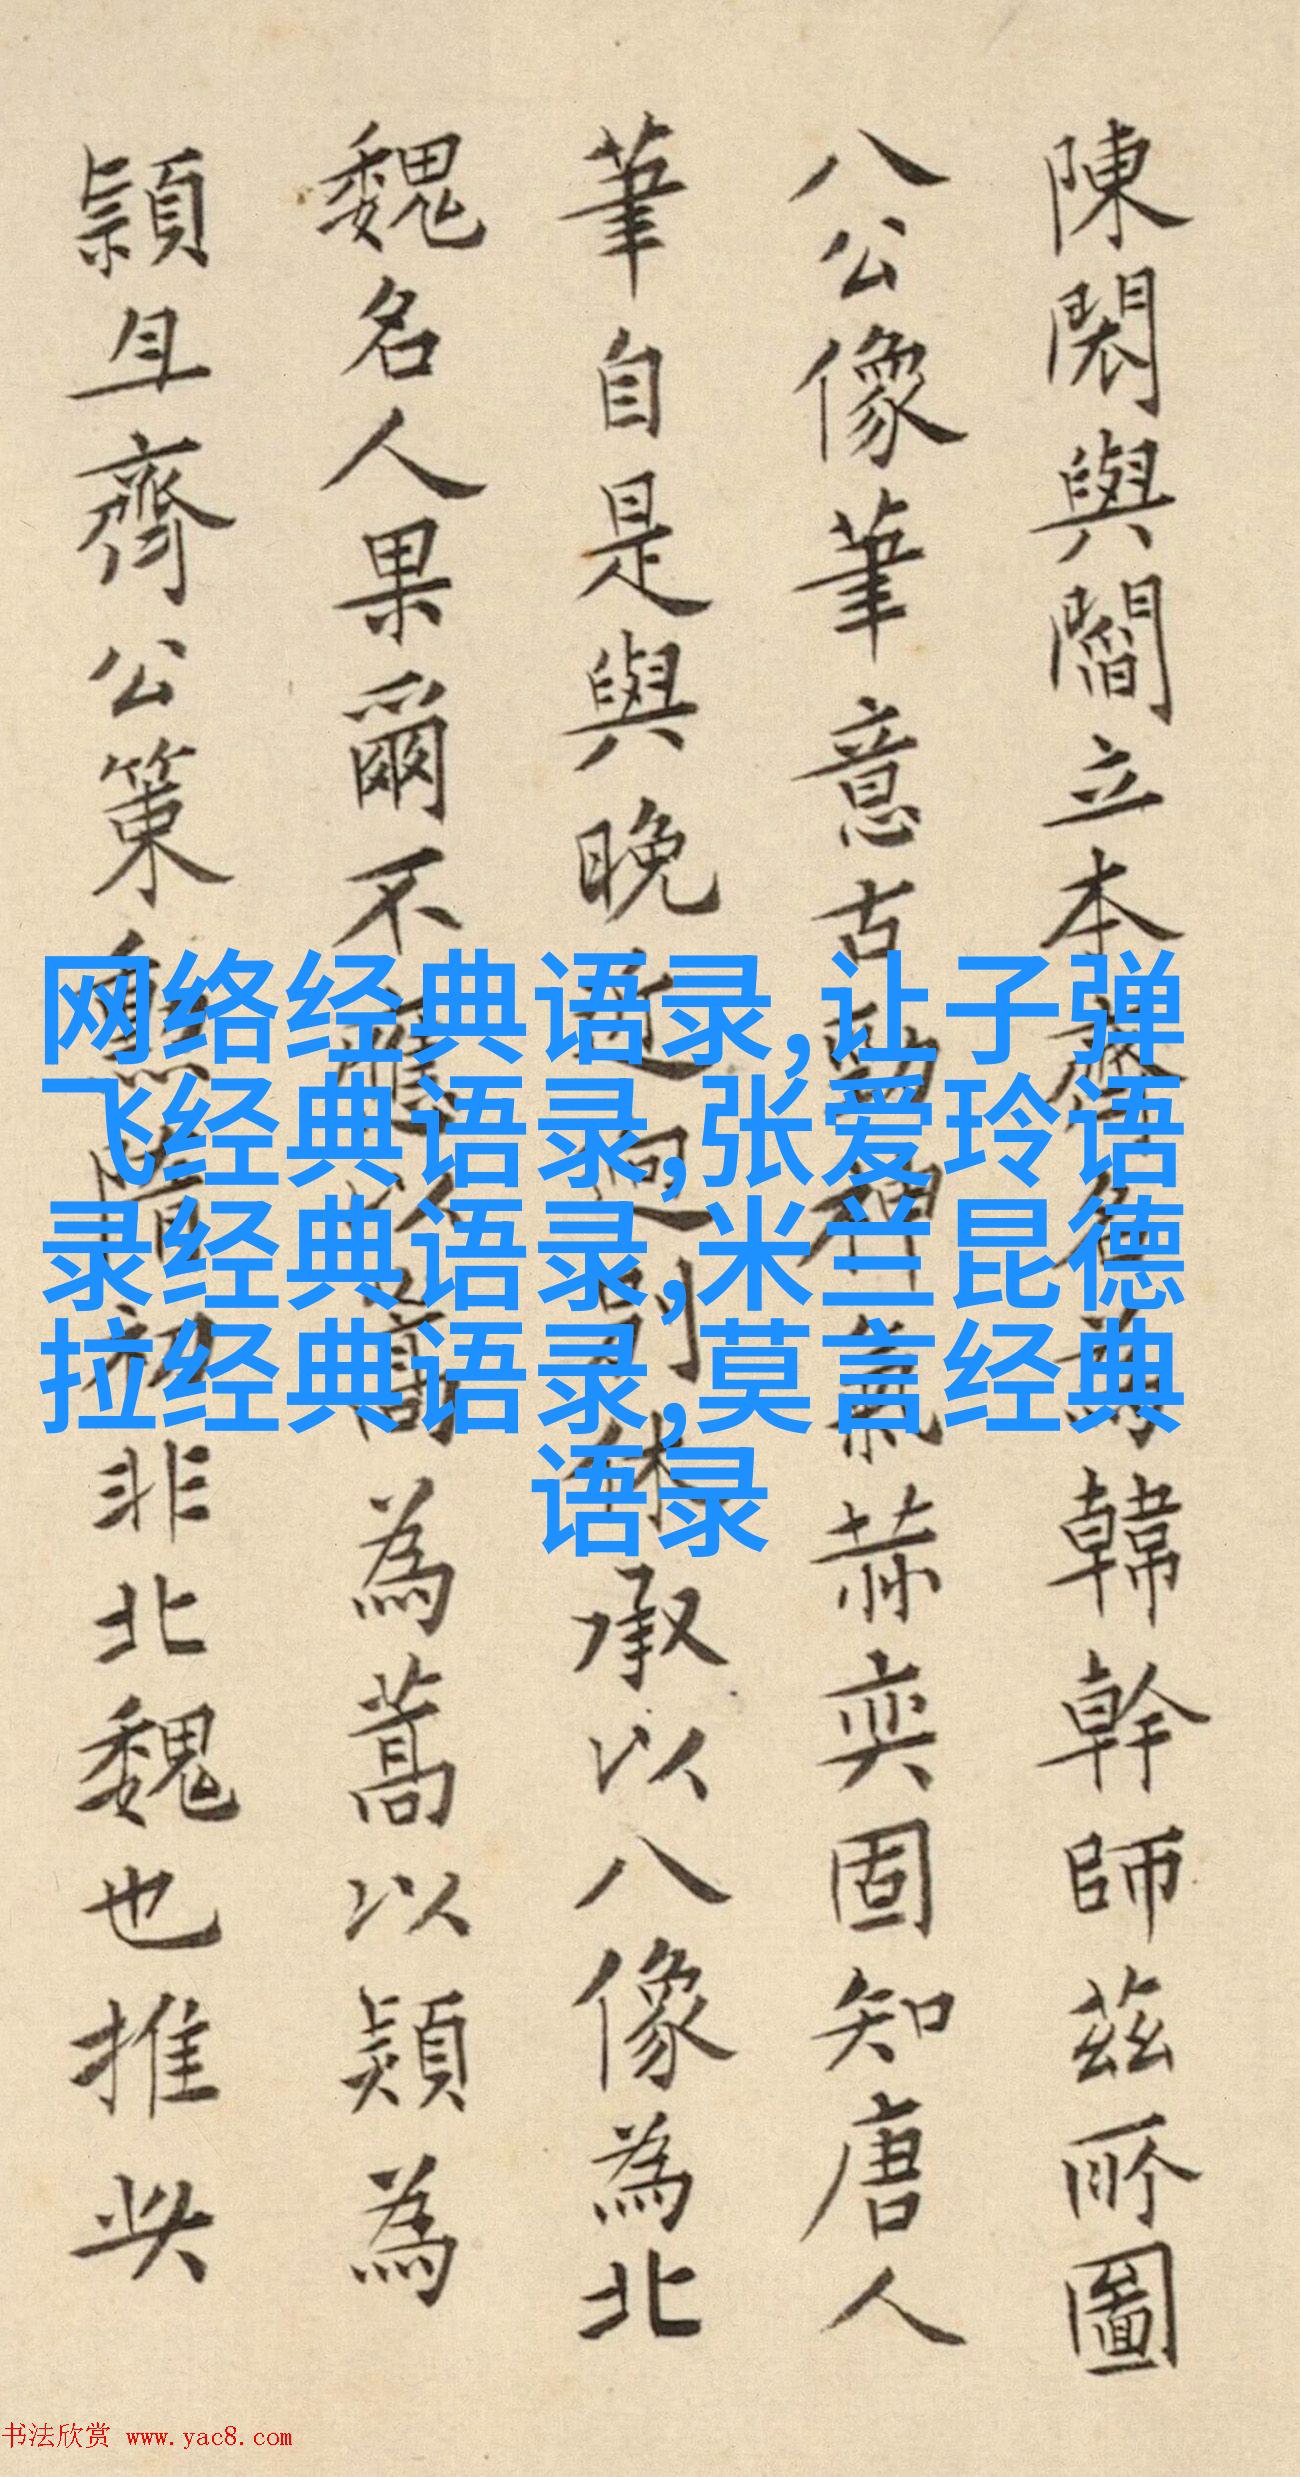 陳閎與閻立本齊名為韓幹師茲所圖
八公像筆意古勁神氣赫奕固知唐人
筆自是與晚近迥別休承以八像為北
魏名人果爾不應以嵩為蒿以熲為
頴且齊公策焦皆初非北魏也推此
网络经典语录,让子弹
飞经典语录,张爱玲语
录经典语录,米兰昆德
拉经典语录,莫言经典
语录
书法欣赏 www.yac8.com